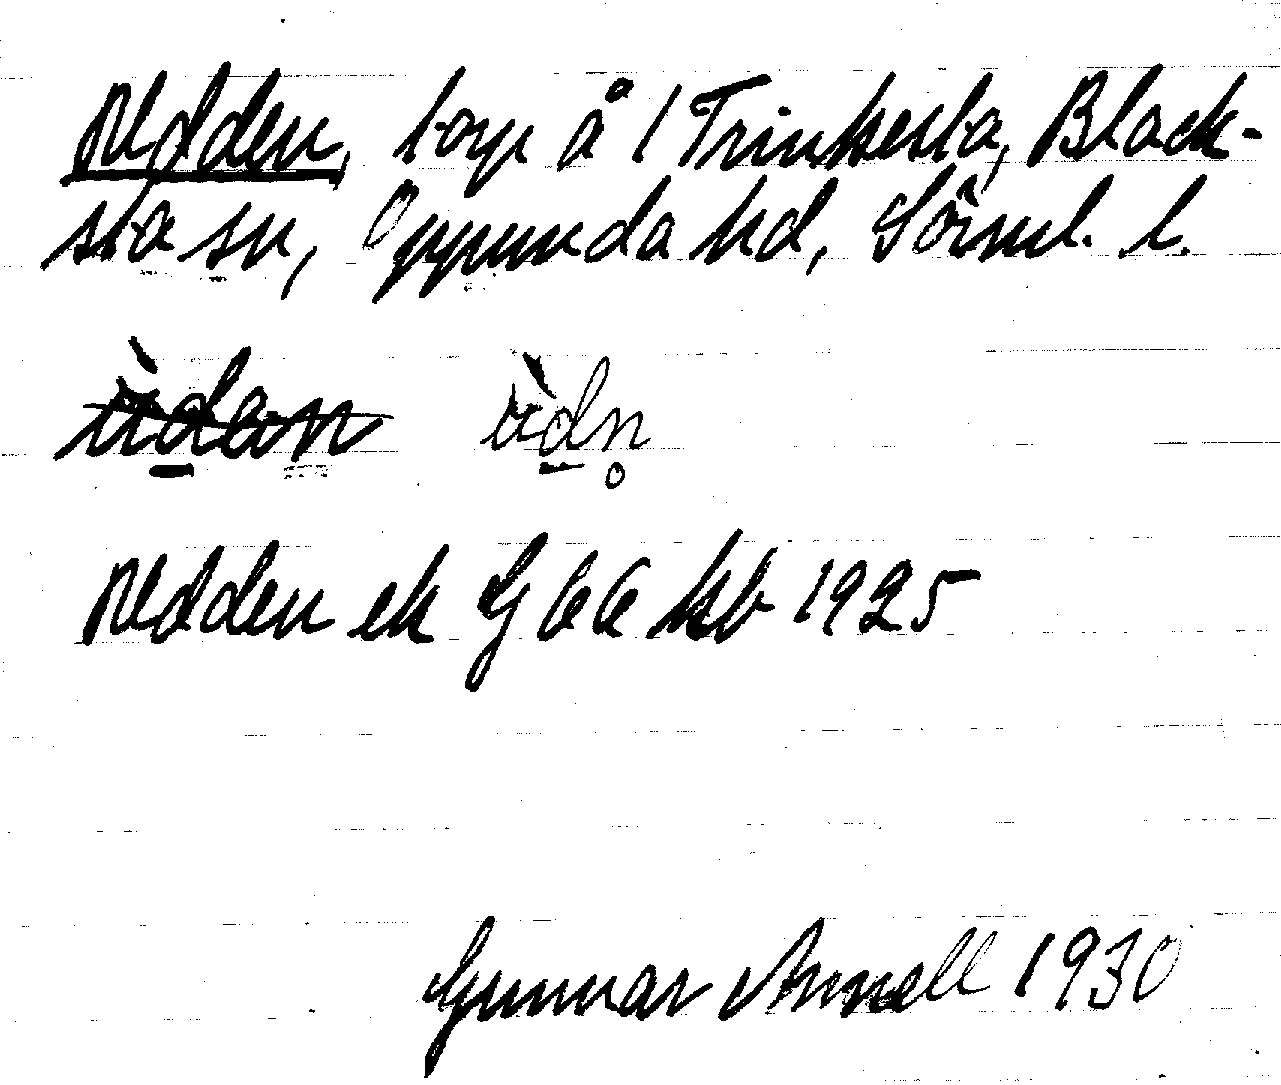 Udden, torp å 1 Trinkesta, Black-
sta sn, Oppunda hd, Sörml. l.
ùd̲an ùd̲n̥
Udden ek G 66 kb 1925
Gunnar Annell 1930